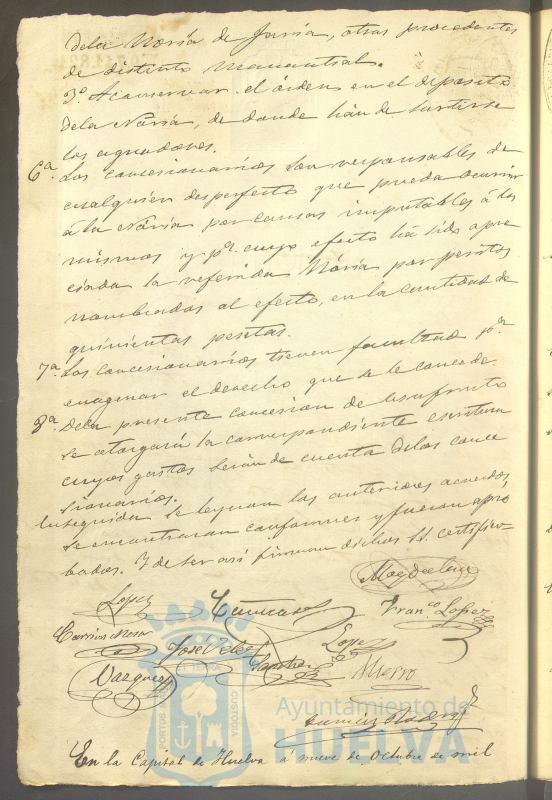 dela Noria de Jarria, otras procedentes
de distinto manantial.
3º. A conservar el órden en el deposito
dela Noria, de donde han de surtirse
los aguadores.
6ª. Los concesionarios son responsables de
cualquier desperfecto que pueda ocurrir
á la Noria por causas imputables á los
mismos y pª cuyo efecto ha sido apre
ciada la referida Noria por peritos
nombrados al efecto, en la cantidad de
quinientas pesetas.
7ª. Los concesionarios tienen facultad pª
enagenar el derecho que se le concede
8ª. Dela presente concesion de usufructo
se otorgará la correspondiente escritura
cuyos gastos serán de cuenta delos conce
sionarios.
Enseguida se leyeron los anteriores acuerdos
se encontraron conformes y fueron apro
bados. Y de ser asi firman dichos SS. certifico-
Magdalena
Lopez Franco Lopez
Jose Velez Lopez
Vazquez Sanchez Mierro
PORTUS TERRAE CUSTODIA
Ayuntamiento de
HUELVA
En la Capital de Huelva á nueve de Octubre de mil